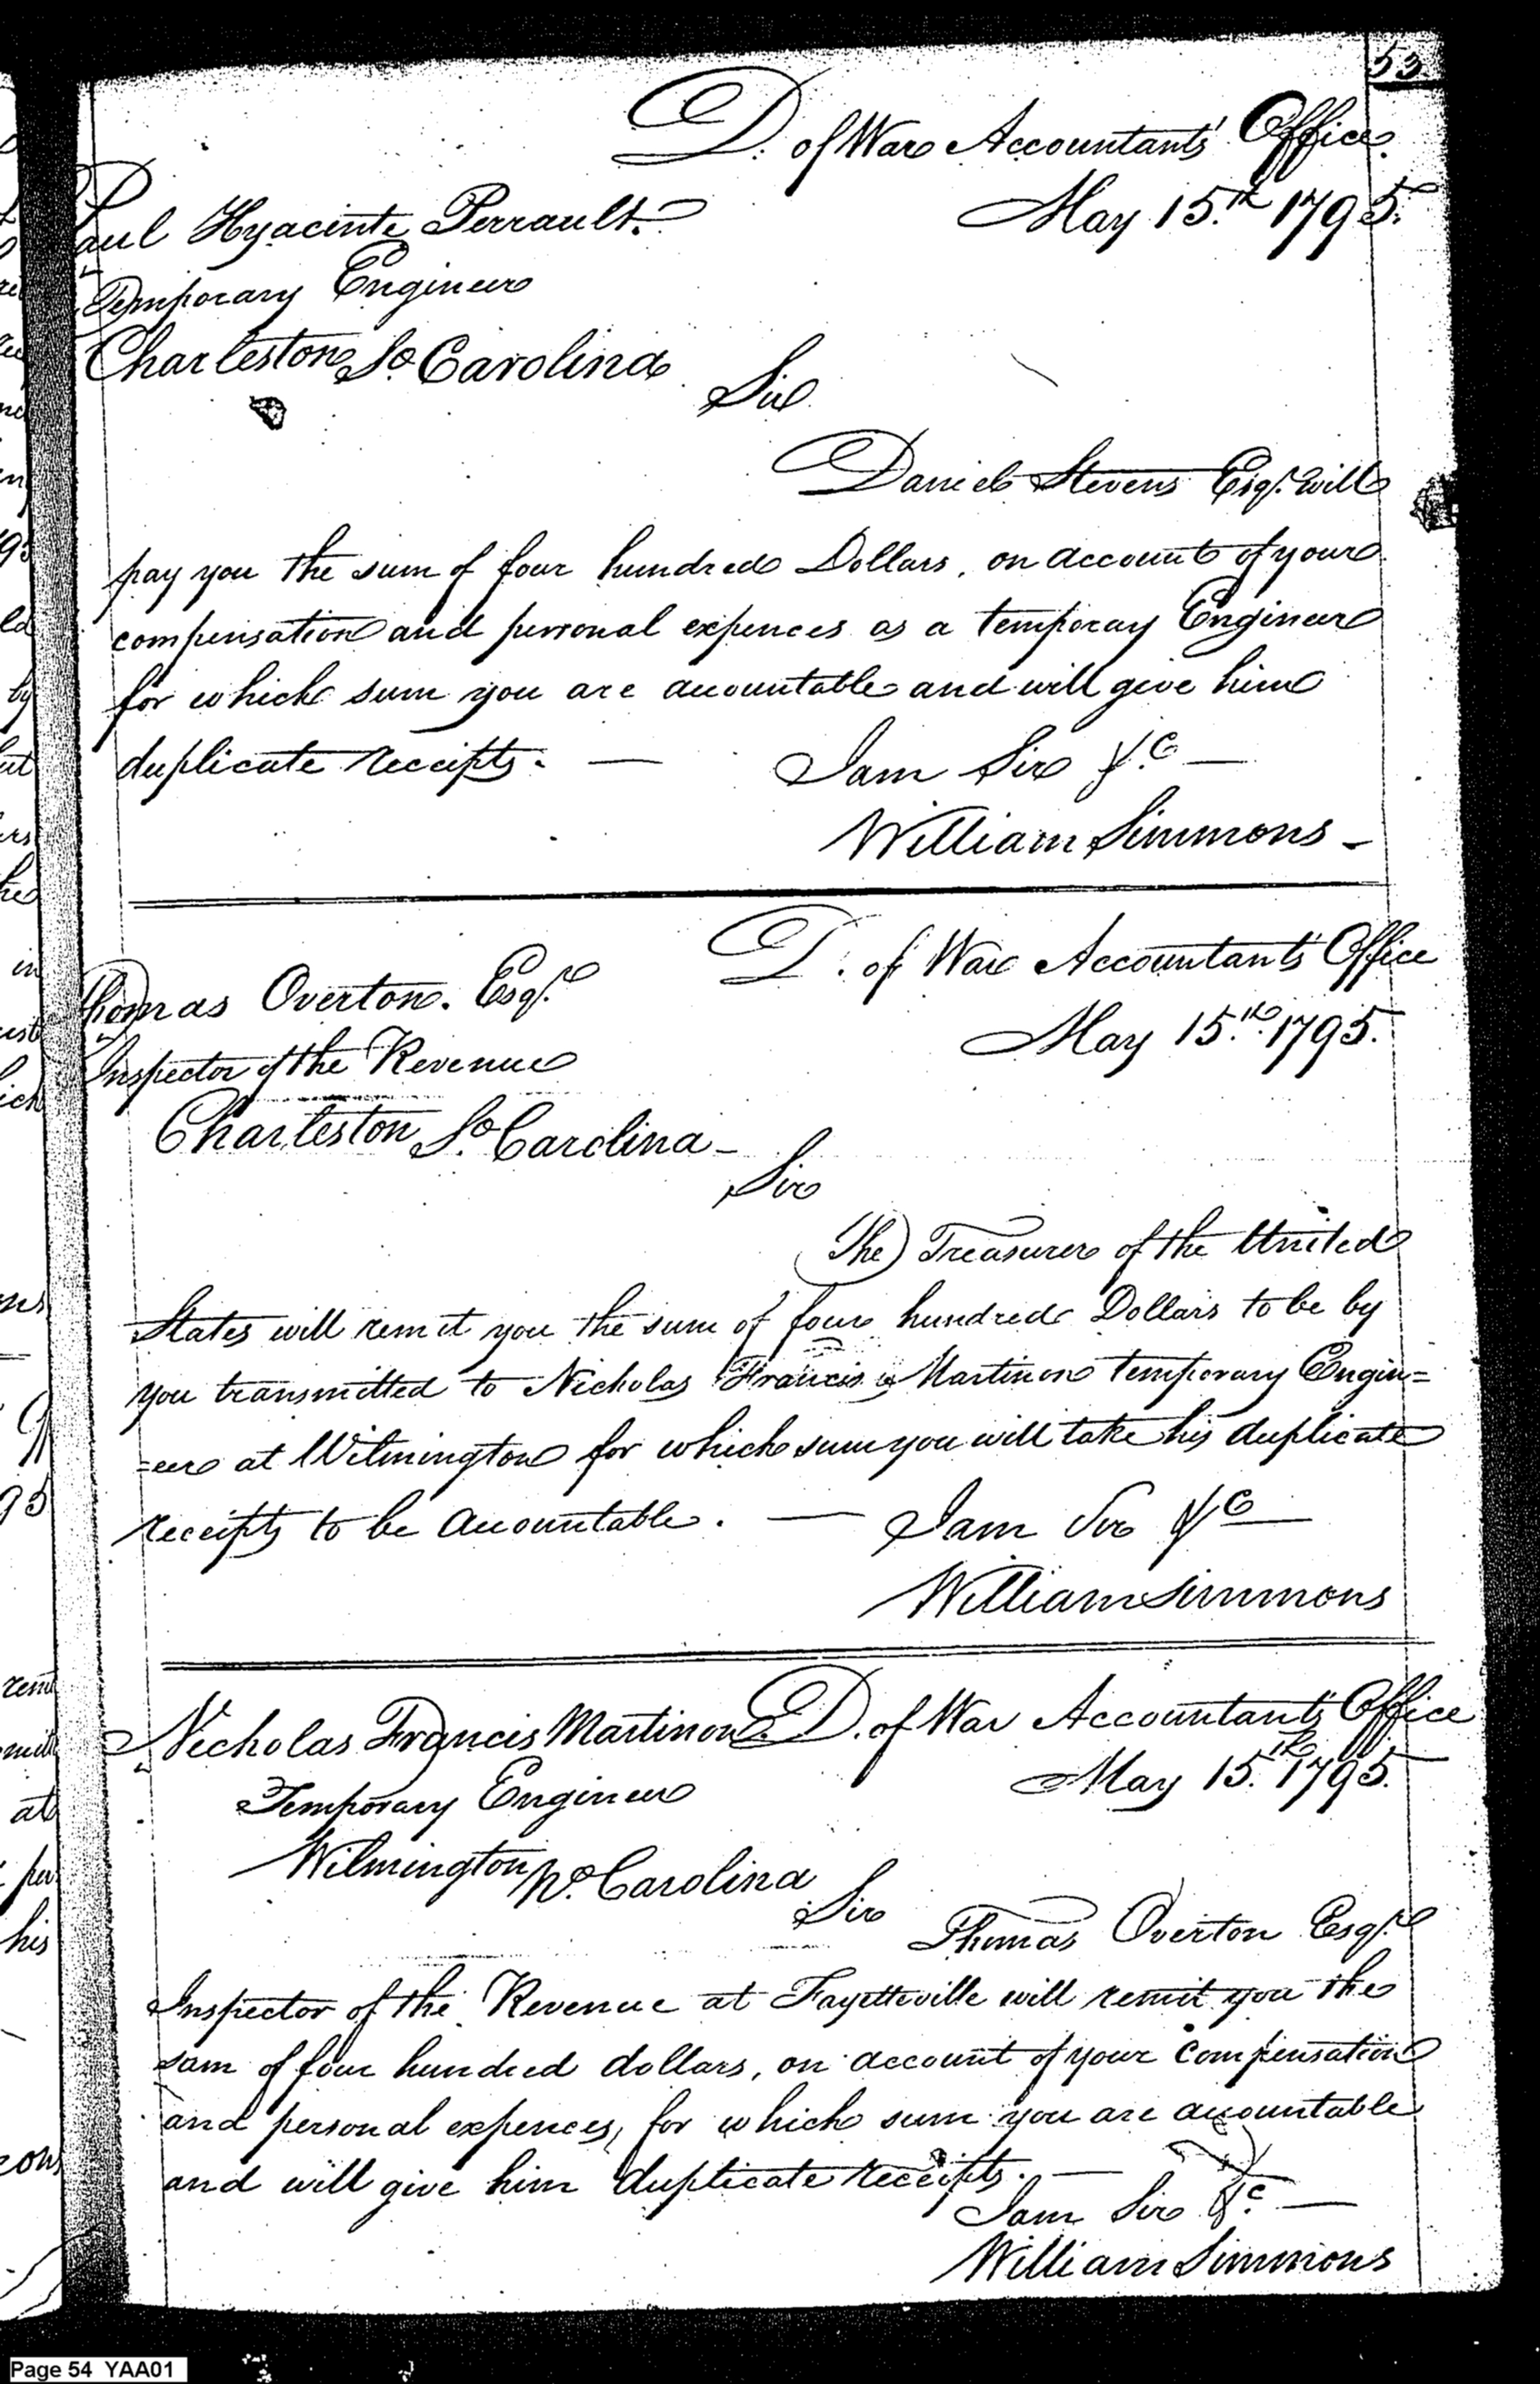 53
D. of War Accountants' Office.
May 15.th 1795.
Paul Hyacinte Perrault.
Temporary Engineer
Charleston So. Carolina
Sir
Daniel Stevens Esqr. will
pay you the sum of four hundred Dollars, on account of your
compensation and personal expences as a temporay Engineer
for which sum you are accountable and will give him
duplicate receipts. —
I am Sir &.c —
William Simmons –
D. of War Accountants Office
May 15.th 1795.
Thomas Overton. Esqr.
Inspector of the Revenue
Charleston So. Carolina –
Sir
The Treasurer of the United
States will remit you the sum of four hundred Dollars to be by
you transmitted to Nicholas Francis Martinon temporary Engin=
=eer at Wilmington for which sum you will take his duplicate
receipts to be accountable. —
I am Sir &c —
William Simmons
Nicholas Francis Martinon. D. of War Accountants Office
May 15.th 1795.
Temporary Engineer
Wilmington No. Carolina
Sir
Thomas Overton Esqr.
Inspector of the Revenue at Fayetteville will remit you the
sum of four hundred dollars, on account of your compensation
and personal expences, for which sum you are accountable
and will give him duplicate receipts. —
I am Sir &c. —
William Simmons
Page 54 YAA01